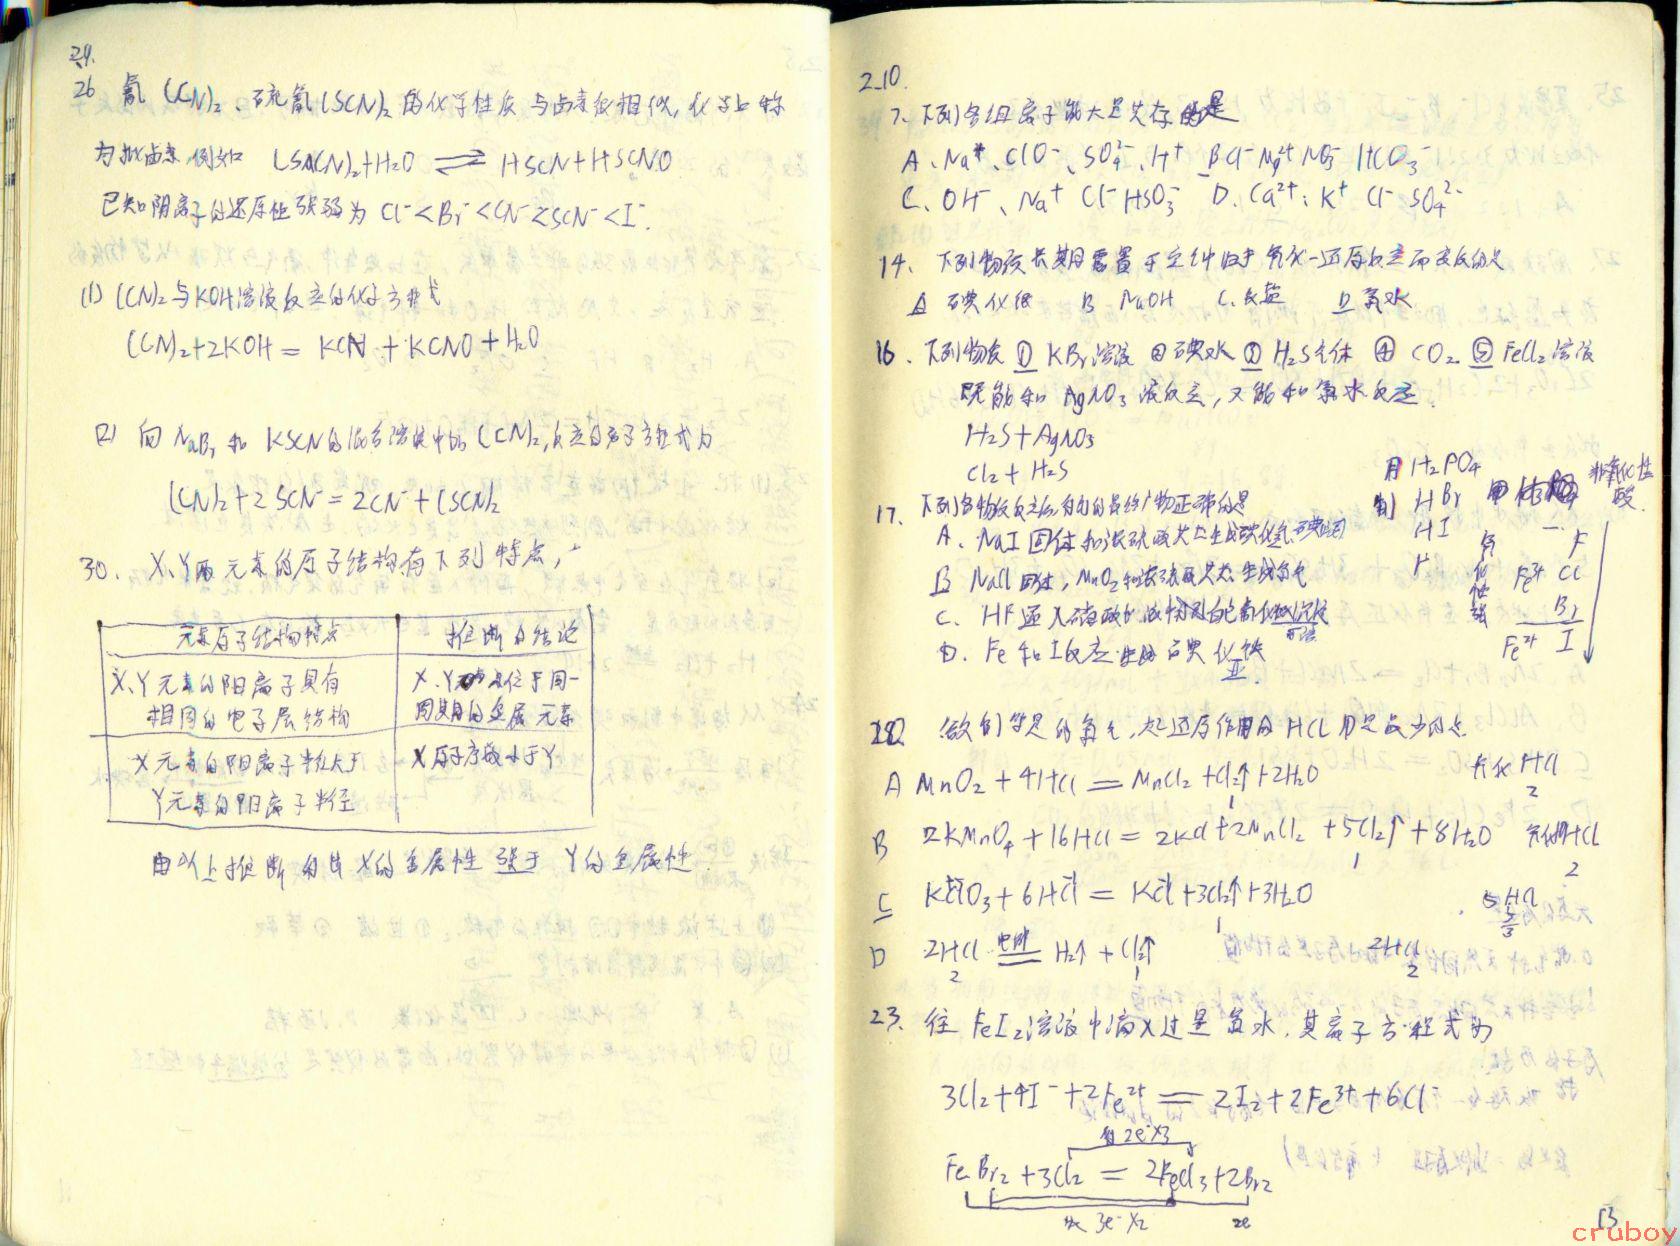 2.9.
26 氰(CN)₂、硫氰(SCN)₂的化学性质与卤素很相似,化学上称
为拟卤素,例如 (SCN)₂+H₂O ⇌ HSCN+HSCNO
已知阴离子的还原性强弱为 Cl⁻<Br⁻<CN⁻<SCN⁻<I⁻.
(1) (CN)₂与KOH溶液反应的化学方程式
(CN)₂+2KOH = KCN+KCNO+H₂O
(2) 向NaBr和KSCN的混合溶液中加(CN)₂,反应的离子方程式为
(CN)₂+2SCN⁻=2CN⁻+(SCN)₂
30. X、Y两元素的原子结构有下列特点,
元素原子结构特点 推断的结论
X、Y元素的阳离子具有 X、Y位于同一
相同的电子层结构 周期的金属元素
X元素的阳离子半径大于 X原子序数小于Y
Y元素的阳离子半径
由以上推断 X的金属性强于Y的金属性.
2.10.
7. 下列各组离子能大量共存的是
A. Na⁺、ClO⁻、SO₄²⁻、H⁺ B Cl⁻ Mg²⁺ NO₃⁻ HCO₃⁻
C. OH⁻、Na⁺ Cl⁻ HSO₃⁻ D. Ca²⁺、K⁺ Cl⁻ SO₄²⁻
14. 下列物质长期露置于空气中由于氧化—还原反应而变质的是
A 碘化钾 B NaOH C. 食盐 D 氯水
16. 下列物质 ① KBr溶液 ② 碘水 ③ H₂S气体 ④ CO₂ ⑤ FeCl₂溶液
既能和AgNO₃溶液反应,又能和氯水反应.
H₂S+AgNO₃
Cl₂+H₂S
用 H₂PO₄
制 HBr
HI
非氧化性
酸
氧化性强
F
Fe³⁺ Cl
Br
Fe²⁺ I
17. 下列各物质反应后得到的最终产物正确的是
A. NaI固体和浓硫酸共热生成碘化氢
B NaCl固体,MnO₂和浓硫酸共热生成氯气
C. HF通入硝酸银
D. Fe和I反应生成碘化铁
II
22. 欲制等量的氯气,起还原作用的HCl用量最少的是
A MnO₂+4HCl = MnCl₂+Cl₂↑+2H₂O HCl
1 2
B 2KMnO₄+16HCl=2KCl+2MnCl₂+5Cl₂↑+8H₂O HCl
1 2
C KClO₃+6HCl = KCl+3Cl₂↑+3H₂O 5HCl
1 5/3
D 2HCl 电解 H₂↑+Cl₂↑ 2HCl
2 1 2
23. 往FeI₂溶液中滴入过量氯水,其离子方程式为
3Cl₂+4I⁻+2Fe²⁺ = 2I₂+2Fe³⁺+6Cl⁻
得2e⁻×3
FeBr₂+3Cl₂ = 2FeCl₃+2Br₂
失 3e⁻×2 2e
13
cruboy